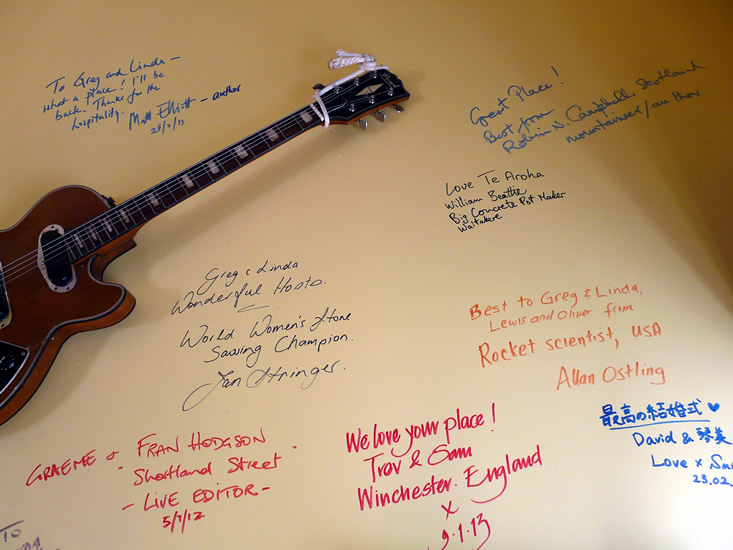 To Greg and Linda –
what a place! I'll be
back. Thanks for the
hospitality.
Matt Elliott – author
25/2/13
Great Place!
Best from
Robin N. Campbell, Scotland
mountaineer/author
Love Te Aroha
William Beattie
Big Concrete Pot Maker
Waitakere
Greg & Linda
Wonderful Hosts.
World Women's Stone
Sawing Champion.
Jan Stringer.
Best to Greg & Linda,
Lewis and Oliver from
Rocket scientist, USA
Allan Ostling
最高の結婚式♥
David & 琴美
Love x
23.02.
GRAEME & FRAN HODGSON
Shortland Street
- LIVE EDITOR -
5/7/12
We love your place!
Trav & Sam
Winchester. England
x
9.1.13
TO